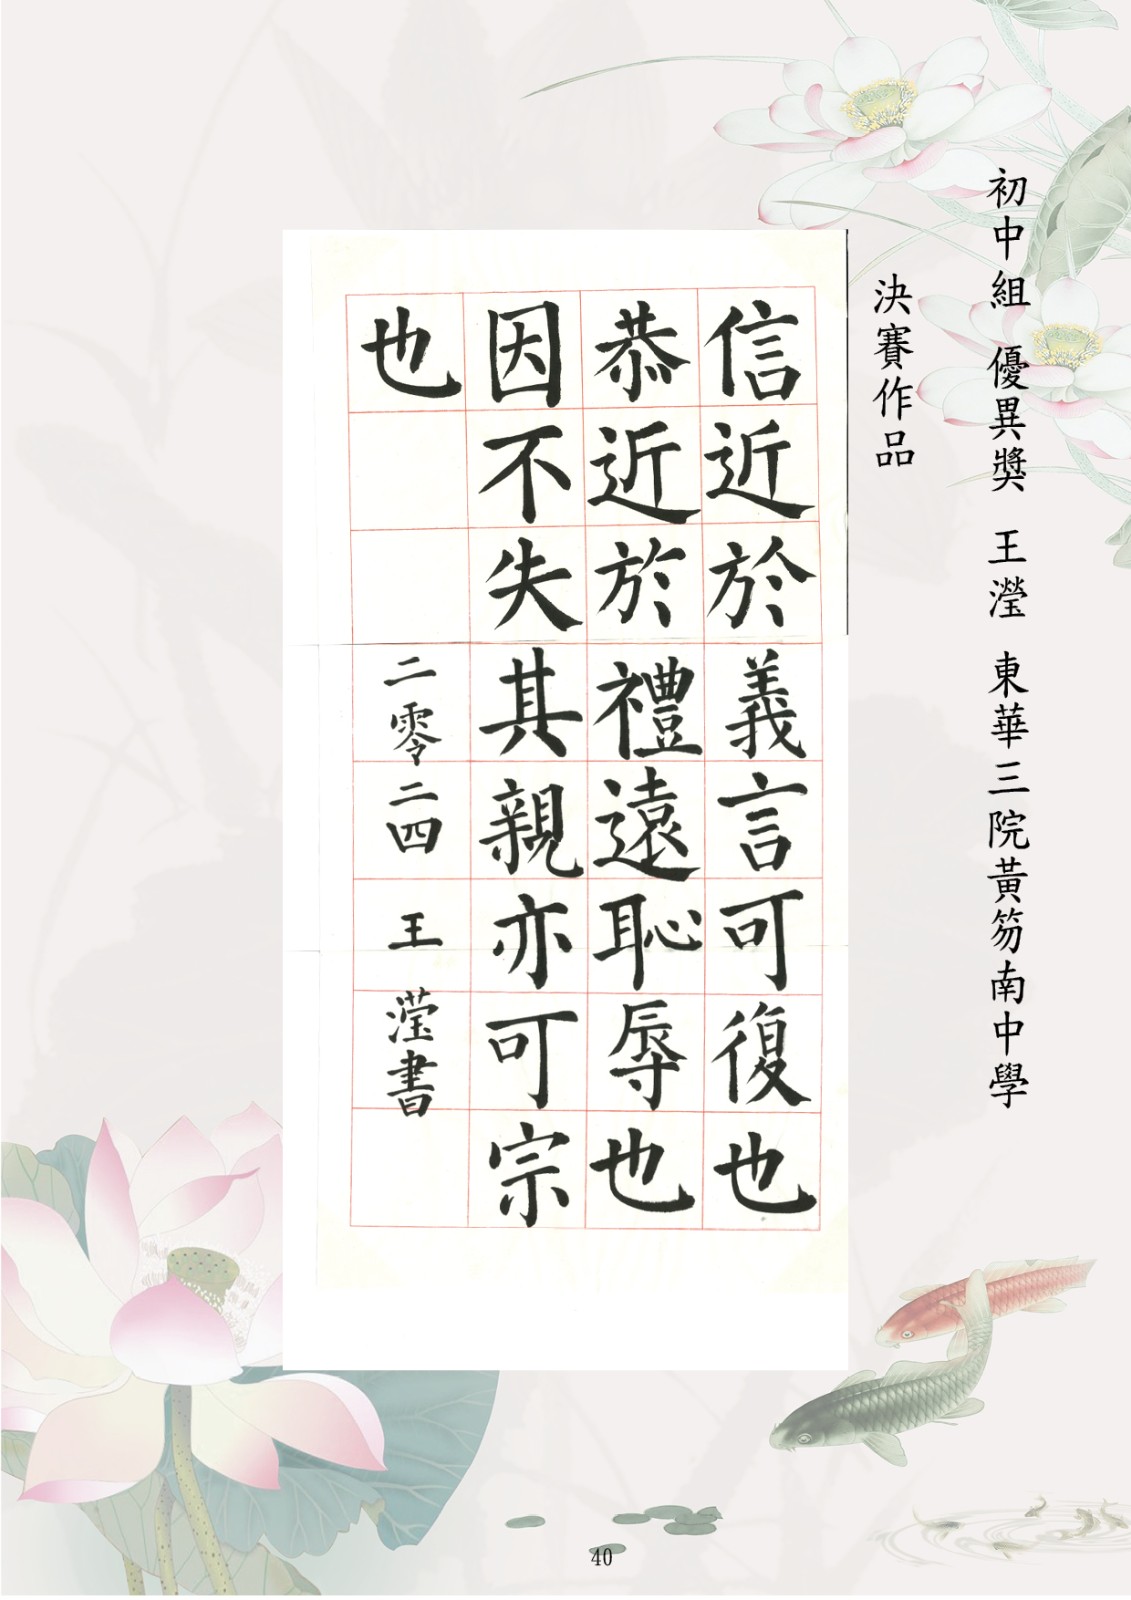 初中組 優異獎 王瀅 東華三院黃笏南中學
決賽作品
信近於義言可復也
恭近於禮遠恥辱也
因不失其親亦可宗
也
二零二四 王 瀅書
40